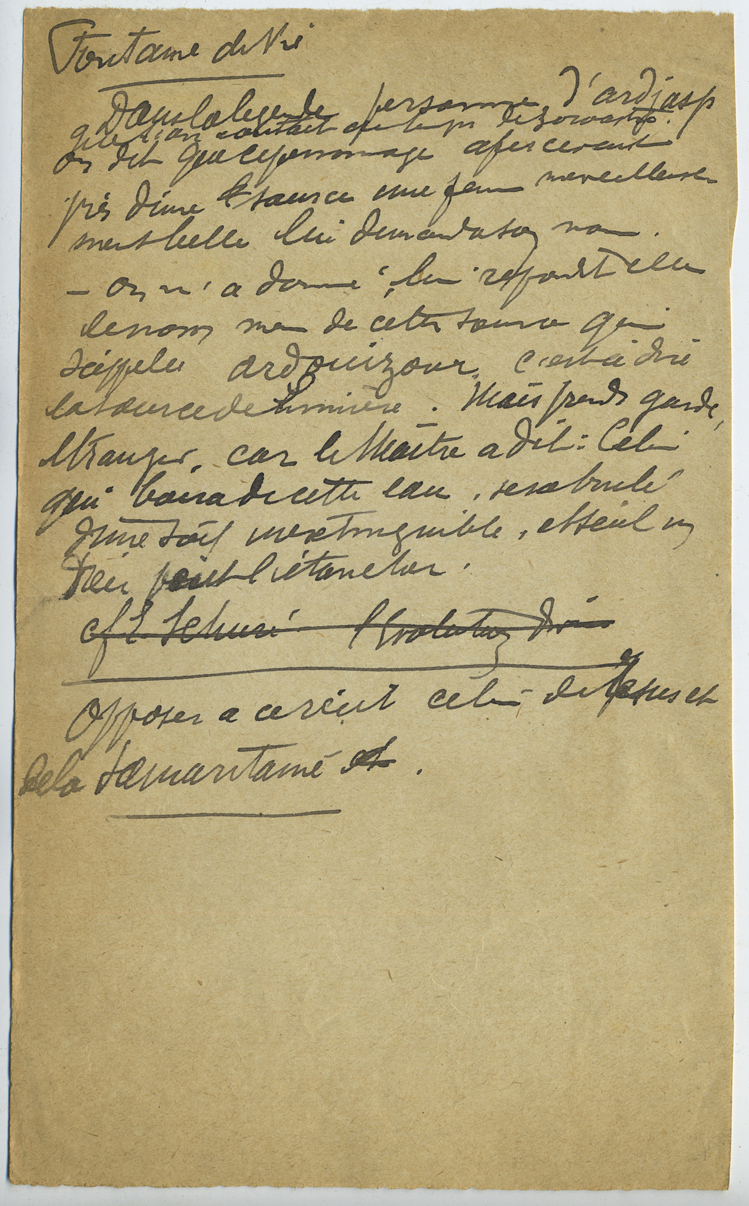 Fontaine de Vie
Dans la legende personne d'ardjasp
que l'on contait au temps de zoroastre.
on dit que ce personnage apercevant
près d'une source une femme merveilleuse
ment belle lui demanda son nom.
— on m'a donné, lui répondit elle
le nom même de cette source qui
s'appelle ardouizour, c'est à dire
la source de lumière. Mais prends garde,
étranger, car le Maître a dit : Celui
qui boira de cette eau, sera brulé
d'une soif inextinguible, et seul un
Dieu peut l'étancher.
cf E. Schuré l'Evolution divine
Opposer a ce récit celui de Jesus et
de la Samaritaine et.